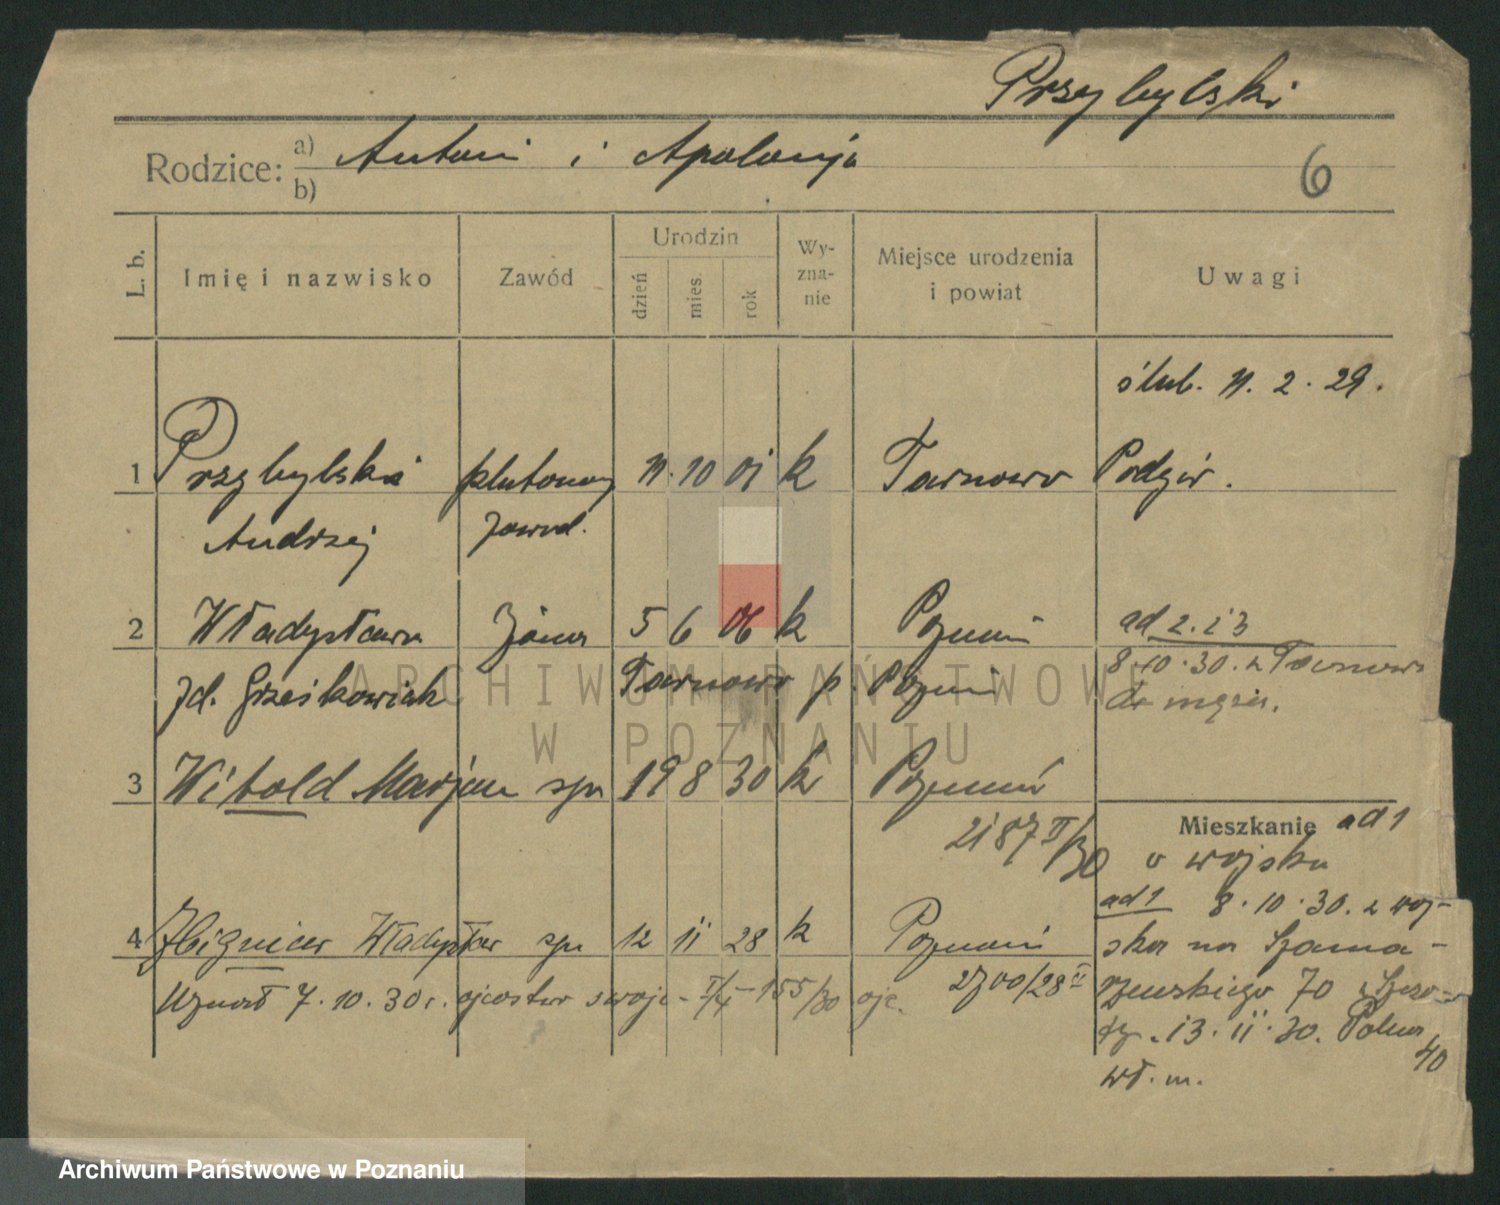 Przybylski
Rodzice: a) Antoni i Apolonja
b)
6
L. b. Imię i nazwisko Zawód Urodzin dzień mies. rok Wy-zna-nie Miejsce urodzenia i powiat Uwagi
ślub. 11. 2. 29.
1 Przybylski plutonowy 11. 10 01 k Tarnowo Podgór.
Andrzej zawod.
2 Władysława żona 5 6 06 k Poznań ad 2. i 3
zd. Grześkowiak Tarnowo p. Poznań 8.10.30. z Tarnowa
do męża.
3 Witold Marjan syn 19 8 30 k Poznań
2187 II/30
Mieszkanie ad 1
u wojska
ad 1 8.10.30. z woj-
4 Zbigniew Władysław syn 12 11 28 k Poznań ska na Szama-
Uznał 7.10.30 r. ojcostwo swoje 155/30 2700/28 II rzewskiego 70
13. 11. 30. Polna 40
wł. m.
ARCHIWUM PAŃSTWOWE
W POZNANIU
Archiwum Państwowe w Poznaniu